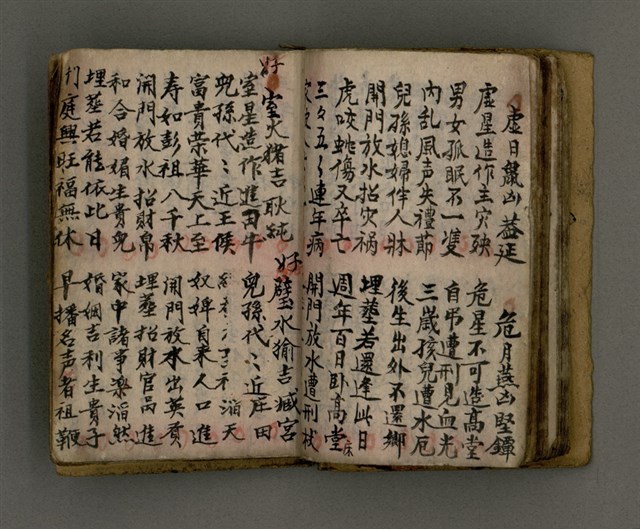 虛日鼠凶 蓋延
虛星造作主灾殃
男女孤眠不一雙
內乱風声失禮節
兒孫媳婦伴人牀
開門放水招灾祸
虎咬蛇傷又卒亡
三三五五連年病
危月燕凶堅鐔
危星不可造高堂
自吊遭刑見血光
三歲孩兒遭水厄
後生出外不還鄉
埋葬若還逢此日
週年百日卧高堂
床
開門放水遭刑杖
好 室火猪吉 耿純
室星造作進田牛
兒孫代代近王候
富貴榮華天上至
寿如彭祖八千秋
開門放水招財帛
和合婚姻生貴兒
埋葬若能依此日
門庭興旺福無休
好 壁水㺄吉 臧宮
兒孫代代近庄田
滔天
奴婢自来人口進
開門放水出英賢
埋葬招財官品進
家中諸事樂滔然
婚姻吉利生貴子
早播名声者祖鞭